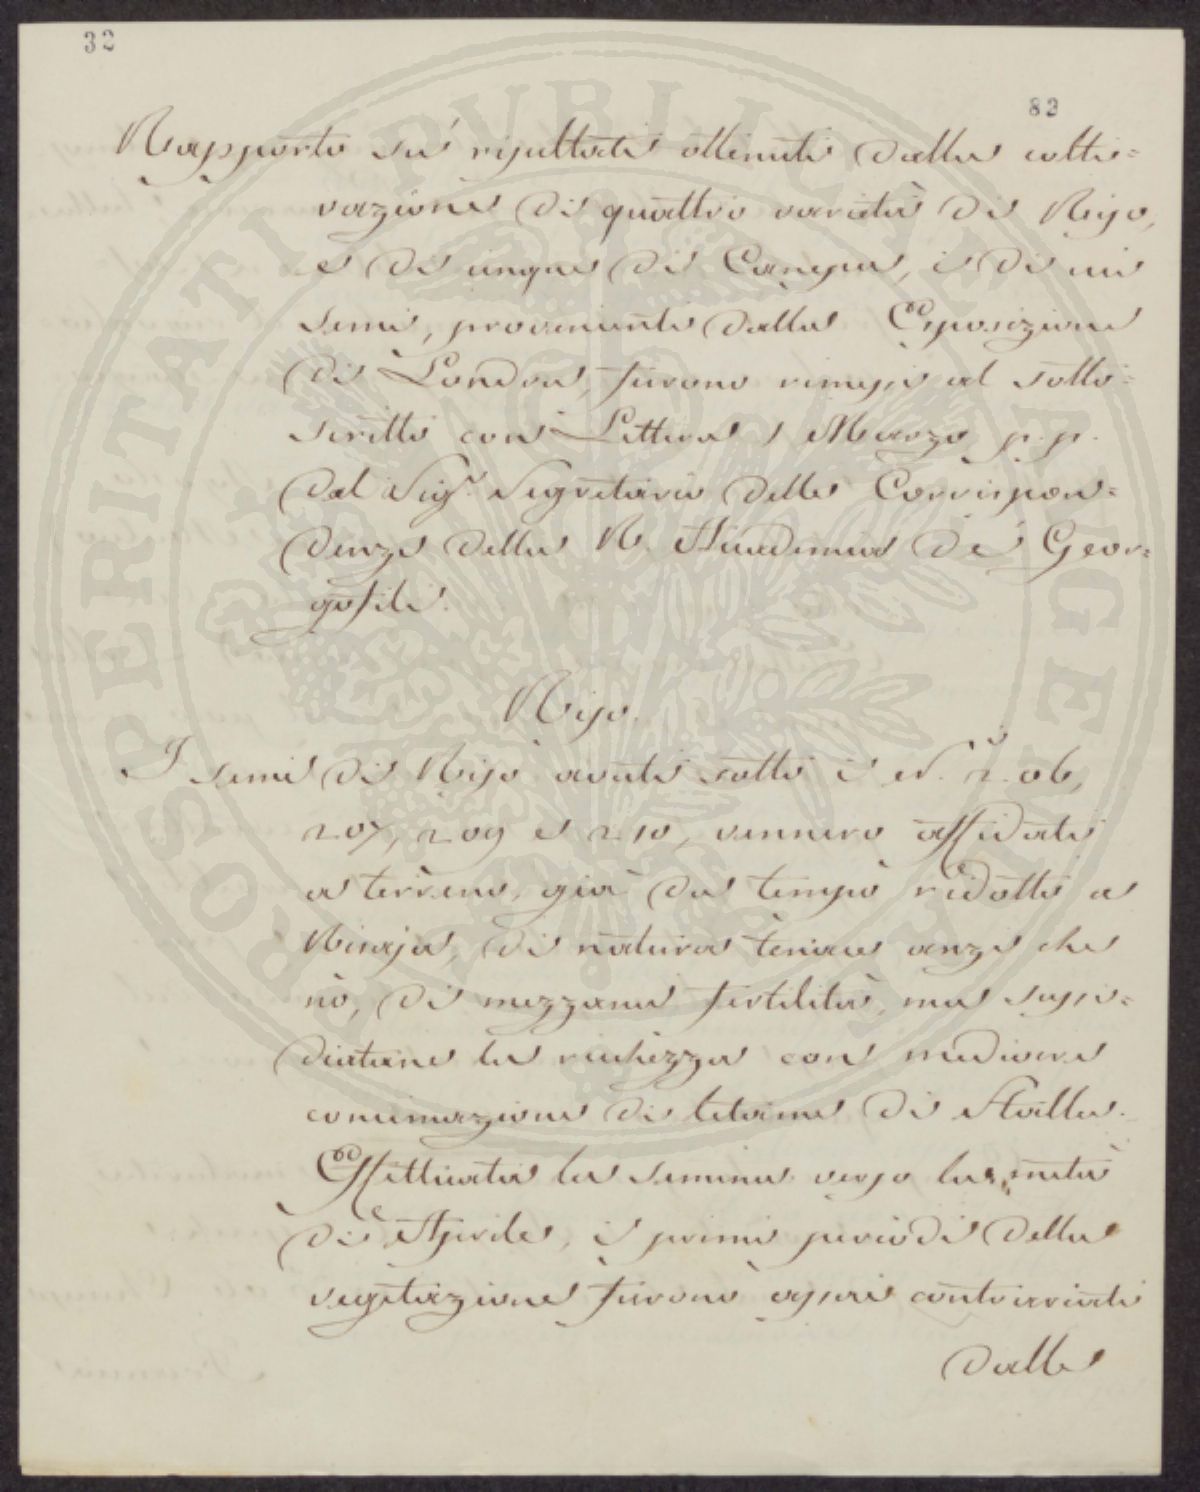 32
82
Rapporto su' risultati ottenuti dalla colti=
vazione di quattro varietà di Riso,
e di cinque di Canapa, i di cui
semi, provenienti dalla Esposizione
di Londra, furono rimessi al sotto=
scritto con Lettera 1 Marzo p.p.
dal Sig.r Segretario delle Corrispon=
denze della R. Accademia de' Geor=
gofili.
Riso.
I semi di Riso avuti sotto i N.i 206,
207, 209 e 210, vennero affidati
a terreno, già da tempo ridotto a
Risaja, di natura tenace anzi che
nò, di mezzana fertilità, ma sussi=
diatane la ricchezza con mediocre
concimazione di letame di stalla.
Effettuata la semina verso la metà
di Aprile, i primi periodi della
vegetazione furono assai contrariati
dalle
PROSPERITATI PVBLICAE AVGENDAE